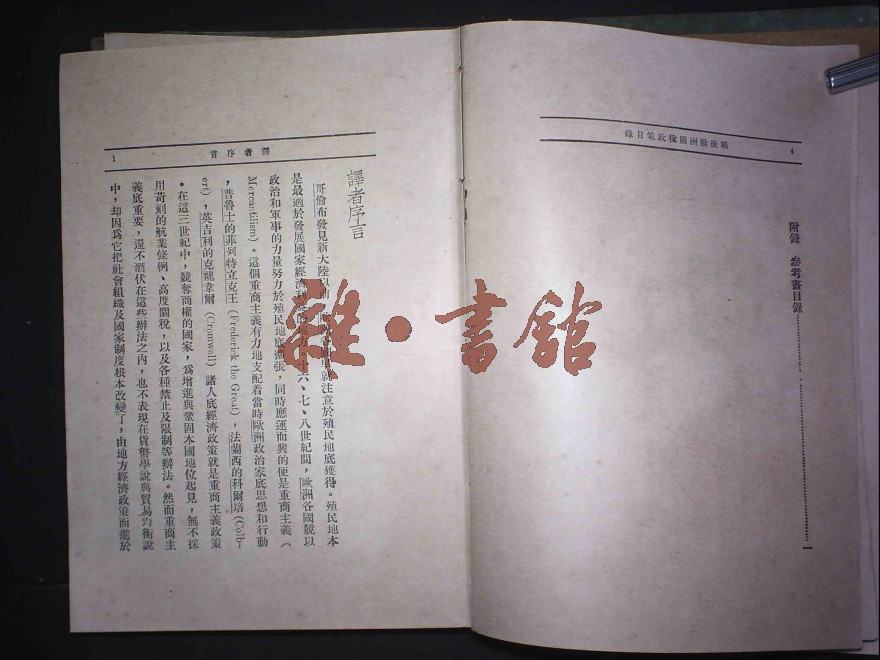 4 戰後歐洲關稅政策目錄
附錄 參考書目錄……………………………………1
譯者序言 1
譯者序言
哥倫布發見新大陸以前,就注意於殖民地底獲得。殖民地本
是最適於發展國家經濟利益的地方。十六、七、八世紀間,歐洲各國競以
政治和軍事的力量努力於殖民地底擴張,同時應運而興的便是重商主義(
Mercantilism)。這個重商主義有力地支配着當時歐洲政治家底思想和行動
,普魯士的菲列特立克王(Frederick the Great),法蘭西的科爾培(Colb-
ert),英吉利的克龍韋爾(Cromwell)諸人底經濟政策就是重商主義政策
。在這三世紀中,競奪商權的國家,爲增進與鞏固本國地位起見,無不採
用苛刻的航業條例、高度關稅,以及各種禁止及限制等辦法。然而重商主
義底重要,還不潛伏在這些辦法之內,也不表現在貨幣學說與貿易均衡說
中,却因爲它把社會組織及國家制度根本改變了,由地方經濟政策而進於
雜·書館